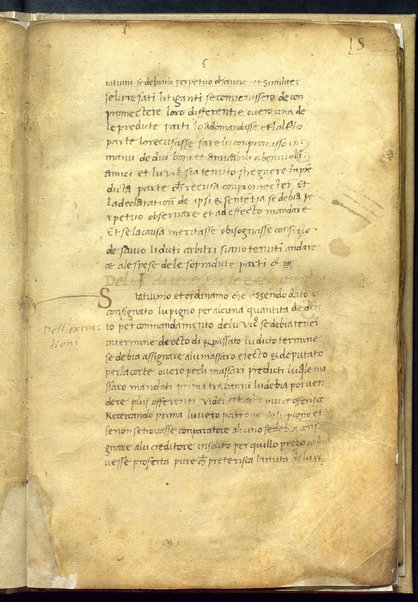 15
5
tatuini se debiano perpetuo observare et similiter
se li prefati litiganti se convenissero de con
promectere loro differentie overo una de
le predicte parti adomandasse et l altra
parte lo recusasse fare lu compromisso in
manu de dui boni et amicabili et benivoli
amici et lu vic sia tenuto stregnere la pre
dicta parte che recusa conpromectere Et
la declaratione de ipsi et sententia se debia per
petuo observare et ad effecto mandare
Et se la causa meritasse obisognasse consiglio
de savio li dicti arbitri siano tenuti andare
ce ale spese de le sopradicte parti
Statuimo et ordinamo che essendo dato
consignato lu pigno per alcuna quantita de
to per commandamento de lu Vic se debia tenere
in termine de octo di et passato lu dicto termine
se debia assignare alu massaro electo et deputato
per la corte overo per li massari predicti lu quale ma
ssaro mandati prima tre banni lu debia poi ven
dere plus offerenti Videlicet a chi più ce offerisce
Recercando prima lu vero patrone de lu pigno et
se non se trovasse conparatore alcuno se debia consi
gnare alu creditore insoluto per quillo prezo
vesse proferta pure che preterisca la mita
Dell execu
tioni